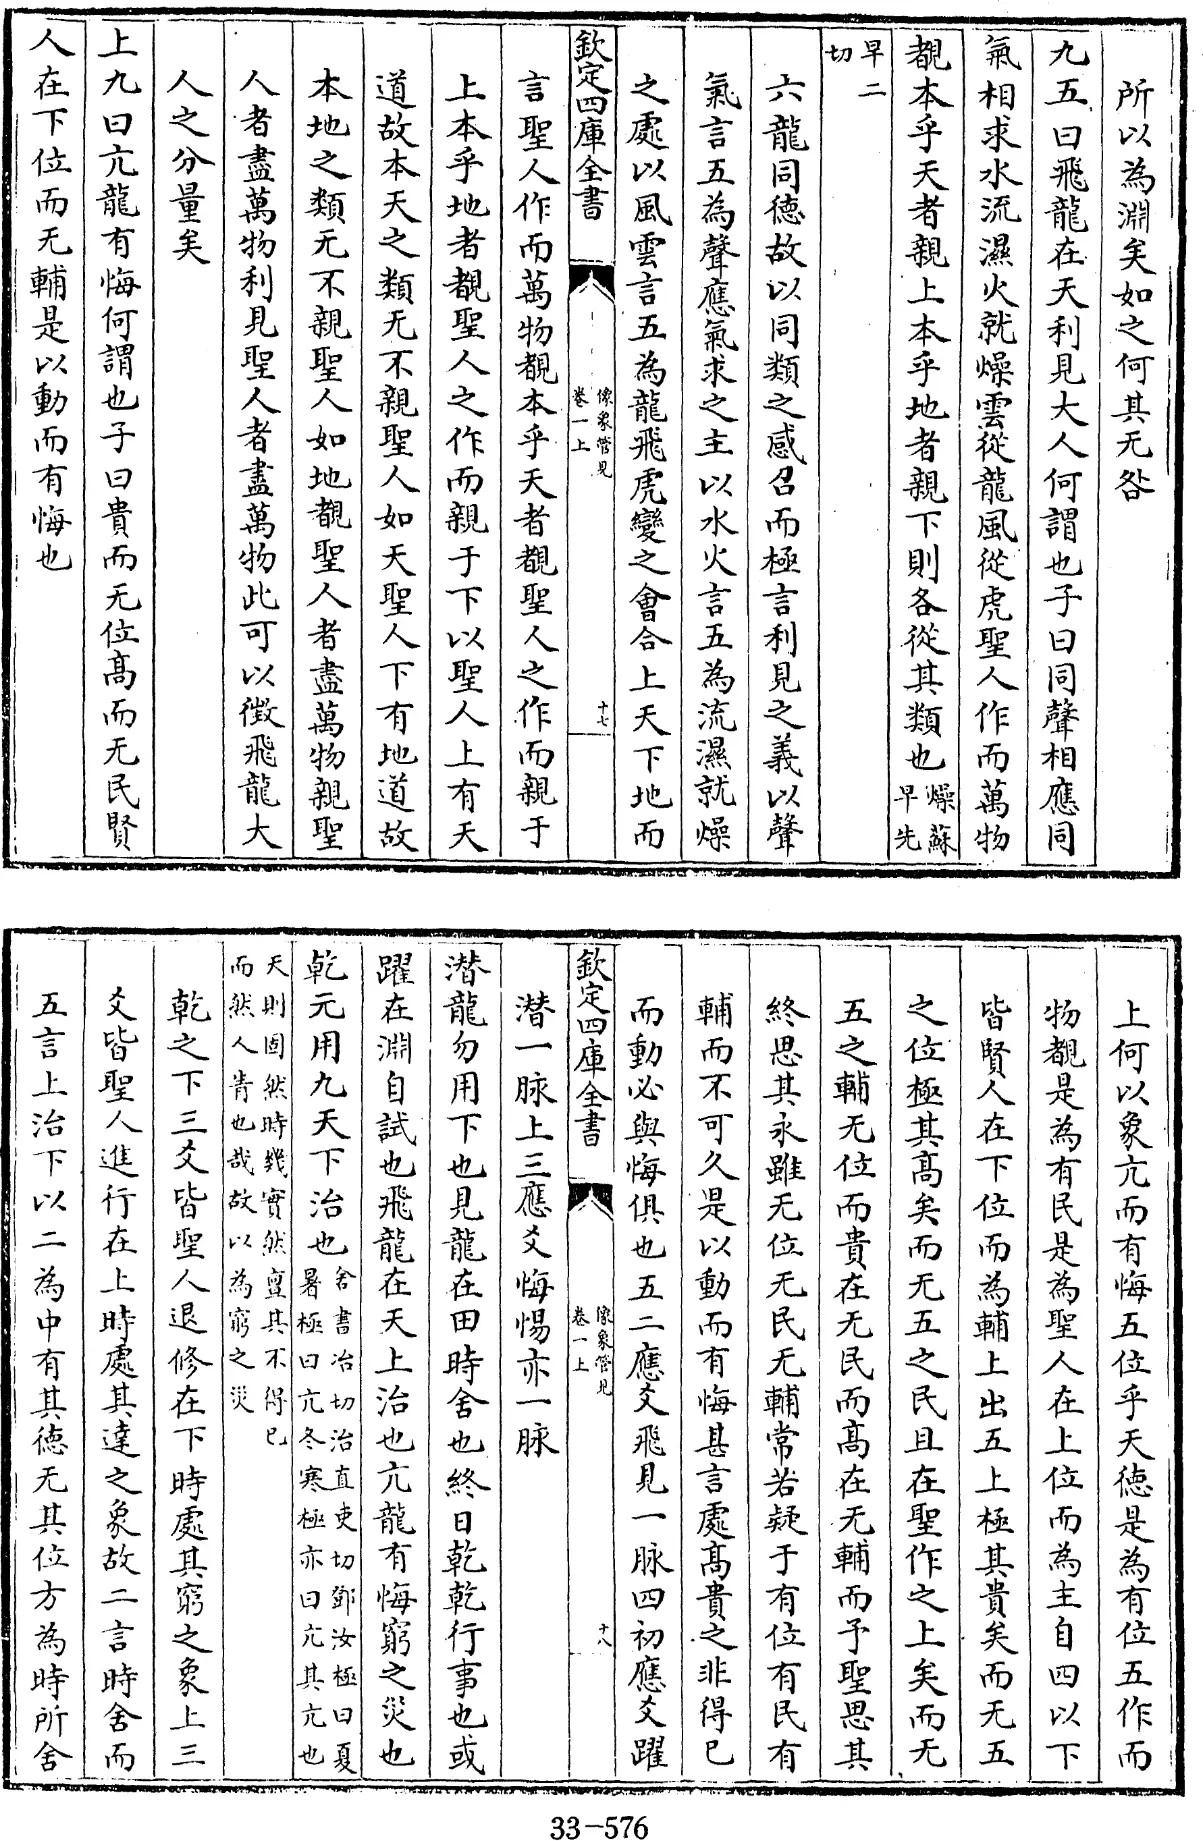 所以為淵矣如之何其无咎
九五曰飛龍在天利見大人何謂也子曰同聲相應同
氣相求水流濕火就燥雲從龍風從虎聖人作而萬物
覩本乎天者親上本乎地者親下則各從其類也燥蘇
早先
早二
切
六龍同德故以同類之感召而極言利見之義以聲
氣言五為聲應氣求之主以水火言五為流濕就燥
之處以風雲言五為龍飛虎變之會合上天下地而
欽定四庫全書
像象管見
卷一上
十七
言聖人作而萬物覩本乎天者覩聖人之作而親于
上本乎地者覩聖人之作而親于下以聖人上有天
道故本天之類无不親聖人如天聖人下有地道故
本地之類无不親聖人如地覩聖人者盡萬物親聖
人者盡萬物利見聖人者盡萬物此可以徵飛龍大
人之分量矣
上九曰亢龍有悔何謂也子曰貴而无位高而无民賢
人在下位而无輔是以動而有悔也
上何以象亢而有悔五位乎天德是為有位五作而
物覩是為有民是為聖人在上位而為主自四以下
皆賢人在下位而為輔上出五上極其貴矣而无五
之位極其高矣而无五之民且在聖作之上矣而无
五之輔无位而貴在无民而高在无輔而予聖思其
終思其永雖无位无民无輔常若疑于有位有民有
輔而不可久是以動而有悔甚言處高貴之非得已
而動必與悔俱也五二應爻飛見一脉四初應爻躍
欽定四庫全書
像象管見
卷一上
十八
潛一脉上三應爻悔惕亦一脉
潛龍勿用下也見龍在田時舍也終日乾乾行事也或
躍在淵自試也飛龍在天上治也亢龍有悔窮之災也
乾元用九天下治也舍書冶切治直吏切鄧汝極曰夏
暑極曰亢冬寒極亦曰亢其亢也
天則固然時幾實然亶其不得已
而然人眚也哉故以為窮之災
乾之下三爻皆聖人退修在下時處其窮之象上三
爻皆聖人進行在上時處其達之象故二言時舍而
五言上治下以二為中有其德无其位方為時所舍
33-576